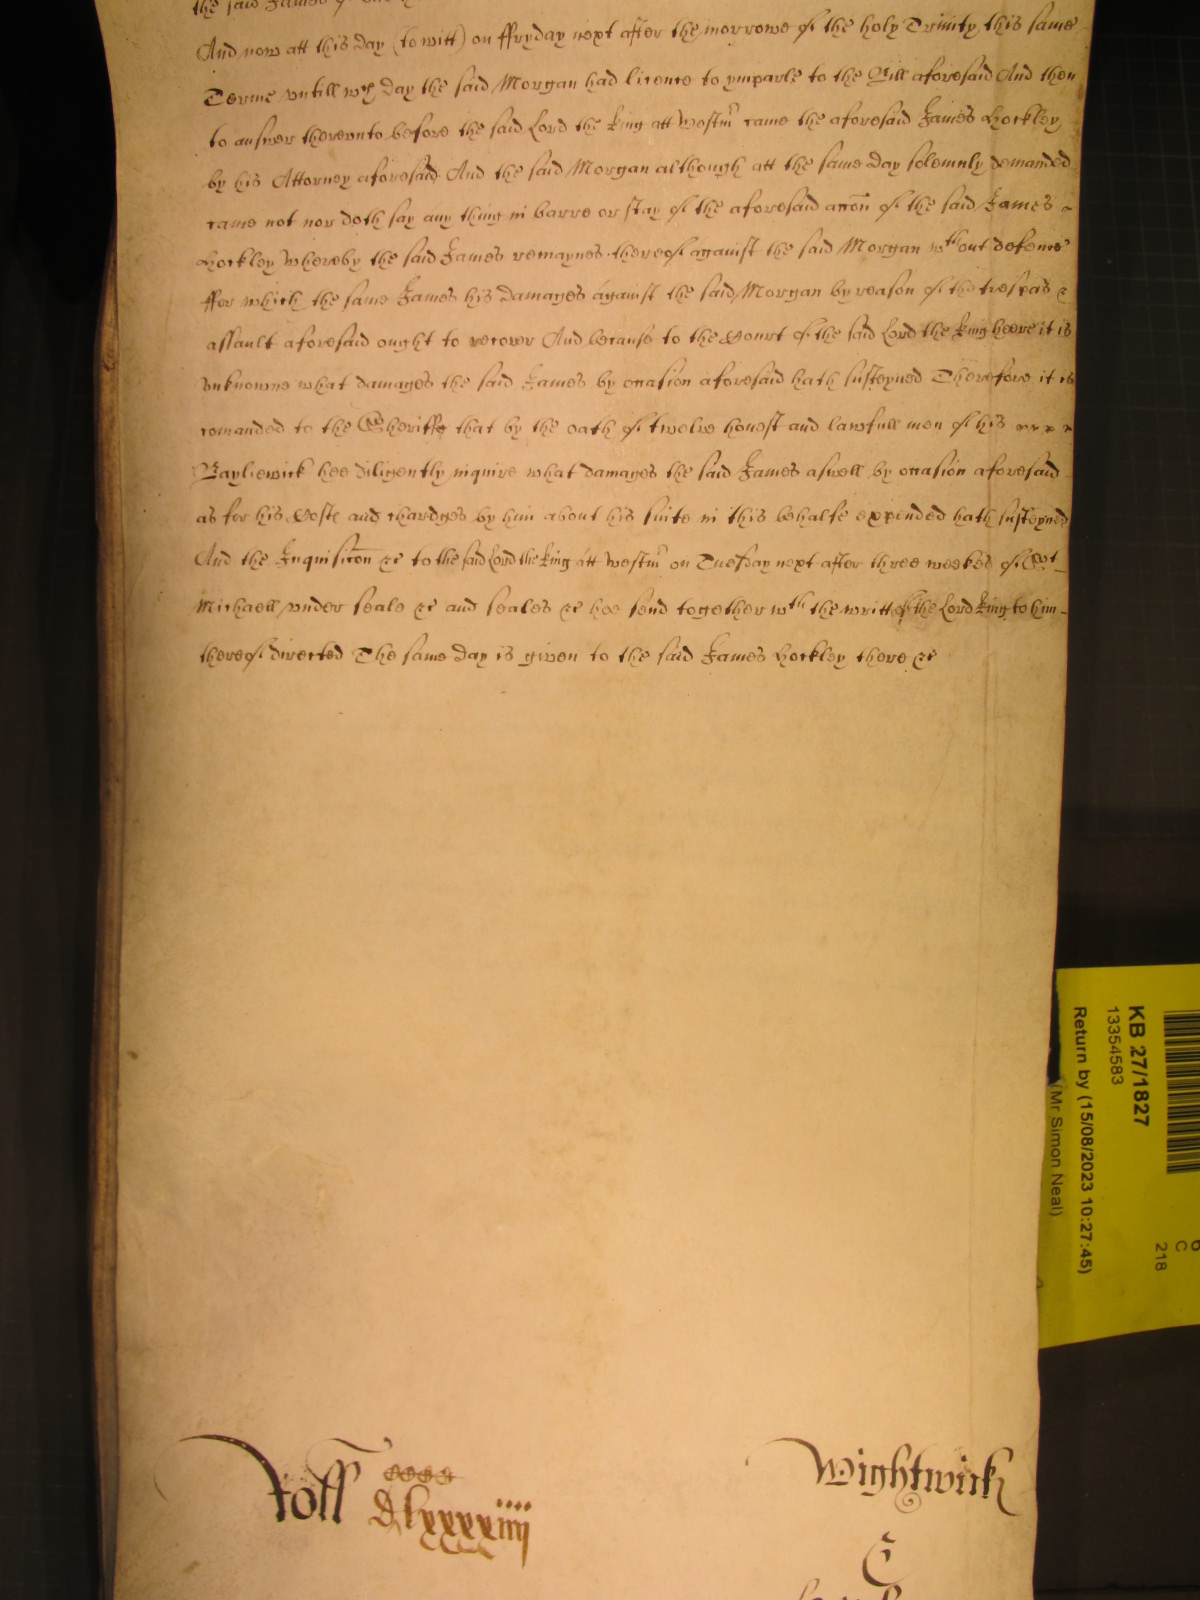 the said James
And now att this day (to witt) on ffryday next after the morrowe of the holy Trinity this same
Terme vntill wch day the said Morgan had licence to ymparle to the Bill aforesaid And then
to answer therevnto before the said Lord the king att Westmr came the aforesaid James Hockley
by his Attorney aforesaid And the said Morgan although att the same day solemnly demanded
came not nor doth say any thing in barre or stay of the aforesaid accon of the said James
Hockley Whereby the said James remaynes thereof against the said Morgan wthout defence
ffor which the same James his damages against the said Morgan by reason of the trespas &
assault aforesaid ought to recover And because to the Court of the said Lord the king heere it is
vnknowne what damages the said James by occasion aforesaid hath susteyned Therefore it is
comanded to the Sheriffe that by the oath of twelve honest and lawfull men of his
Bayliewick hee diligently inquire what damages the said James aswell by occasion aforesaid
as for his Costs and chardges by him about his suite in this behalfe expended hath susteyned
And the Inquisicon &c to the said Lord the king att Westmr on Tuesday next after three weekes of St
Michaell vnder seale &c and seales &c hee send together wth the writt of the Lord king to him
thereof directed The same day is given to the said James Hockley there &c
Roll Dlxxxxiiij
Wightwick
KB 27/1827
13354583
Return by (15/08/2023 10:27:45)
(Mr Simon Neal)
6
C
218